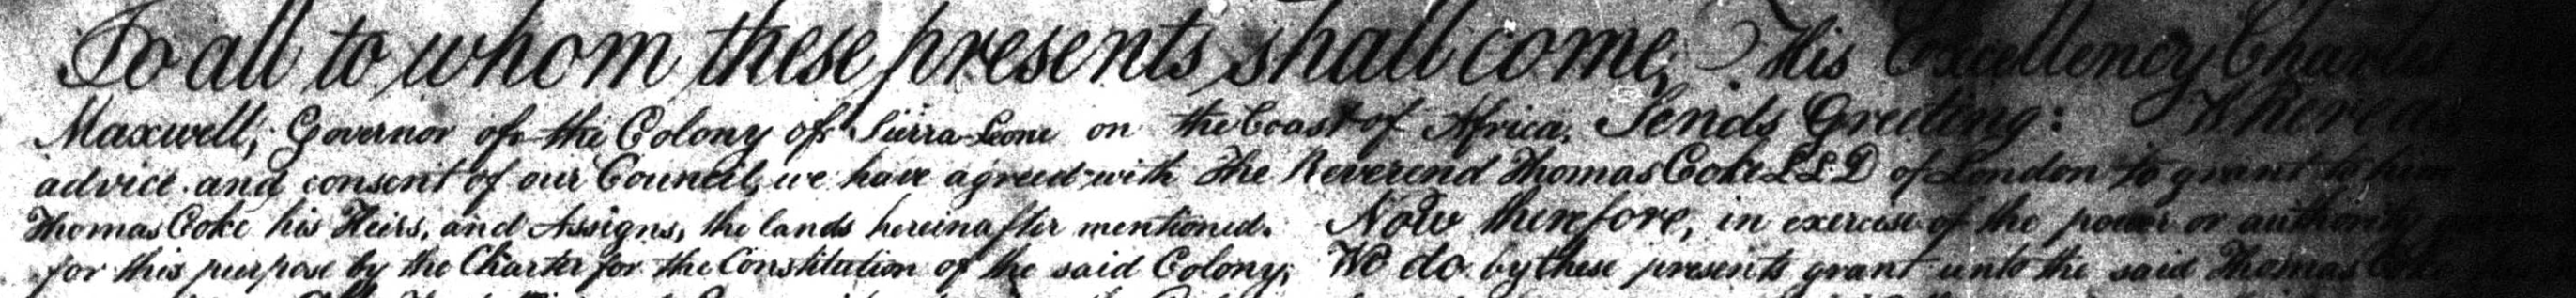 To all to whom these presents shall come, His Excellency Charles
Maxwell, Governor of the Colony of Sierra-Leone on the Coast of Africa, Sends Greeting: Whereas
advice and consent of our Council, we have agreed with The Reverend Thomas Coke LLD of London to grant to him
Thomas Coke his Heirs, and Assigns, the lands hereinafter mentioned. Now therefore, in exercise of the power or authority
for this purpose by the Charter for the Constitution of the said Colony, We do by these presents grant unto the said Thomas Coke